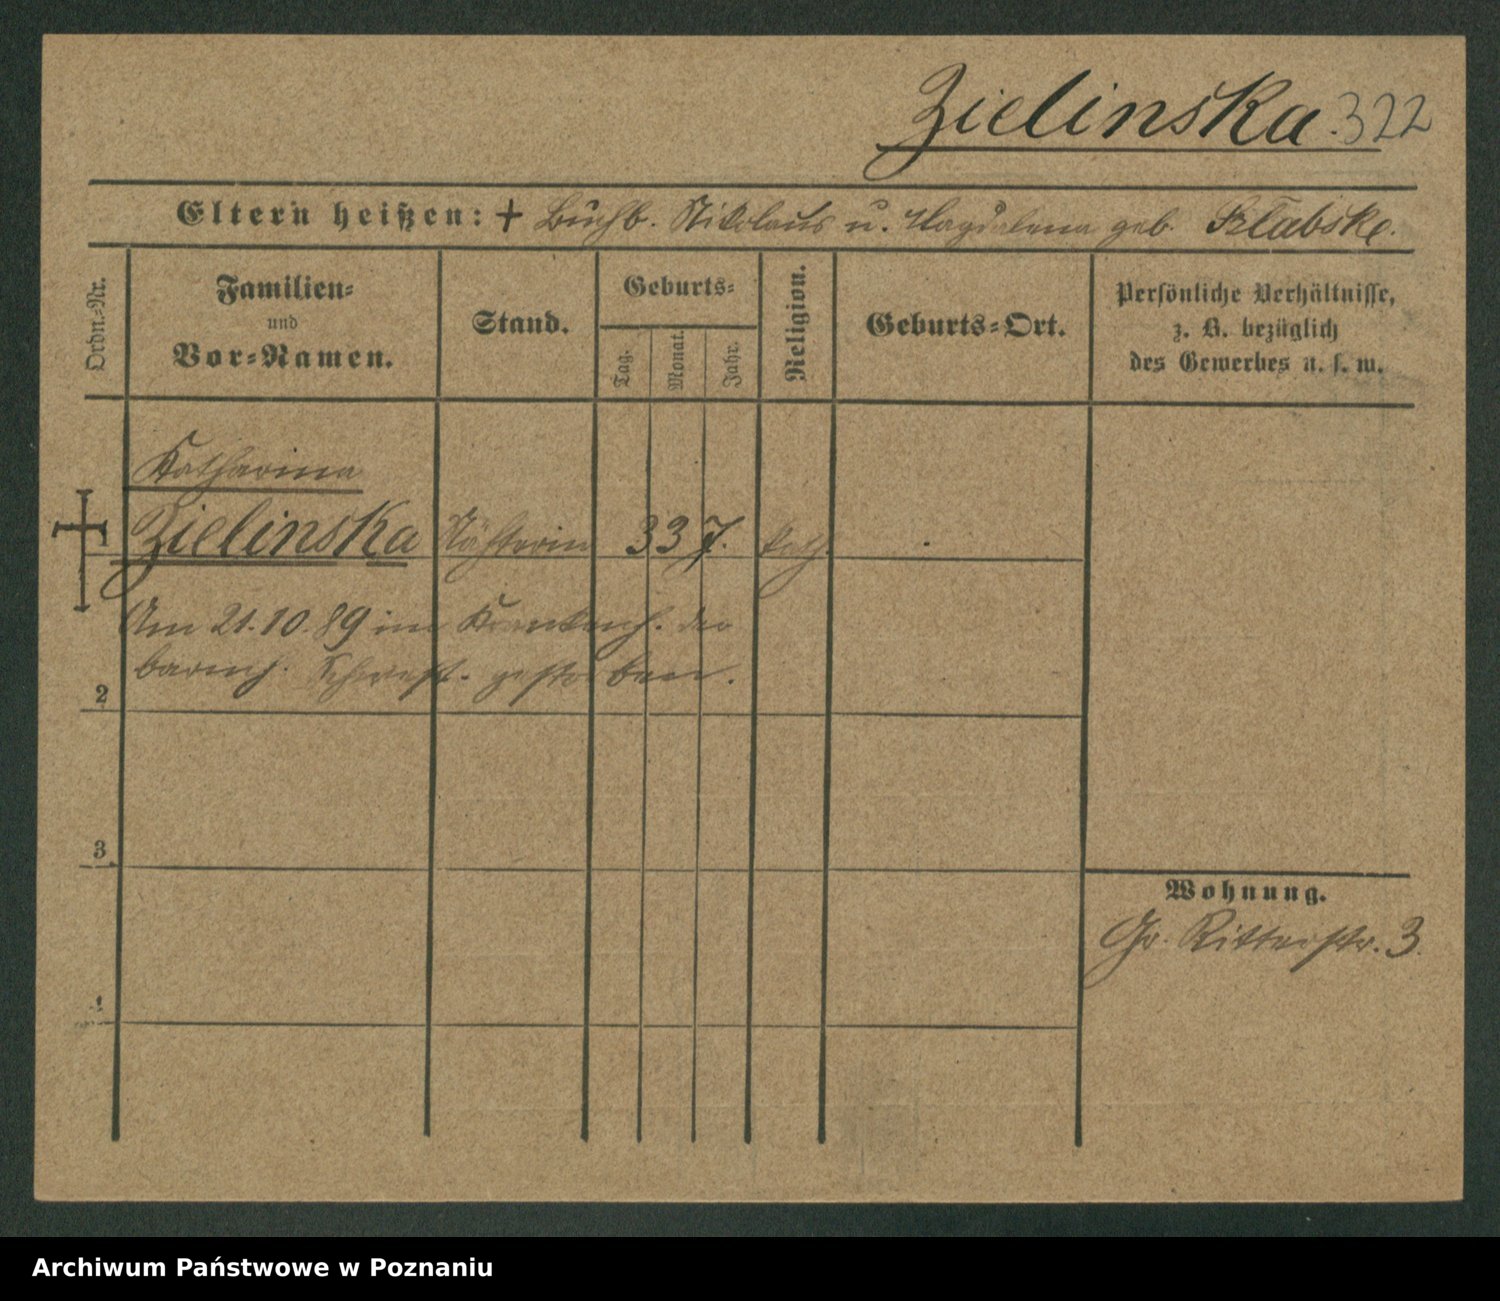 Zielinska. 322
Eltern heißen: + Buchb. Nikolaus u. Magdalena geb.
Ordn.-Nr.
Familien-
und
Vor-Namen.
Stand.
Geburts-
Tag.
Monat.
Jahr.
Religion.
Geburts-Ort.
Persönliche Verhältnisse,
z. B. bezüglich
des Gewerbes u. s. w.
Katharina
Zielinska Näherin 33 J. kath.
Am 21.10.89 im Krankenh. der
barmh. Schwest. gestorben.
2
3.
4
Wohnung.
Gr. Ritterstr. 3.
Archiwum Państwowe w Poznaniu